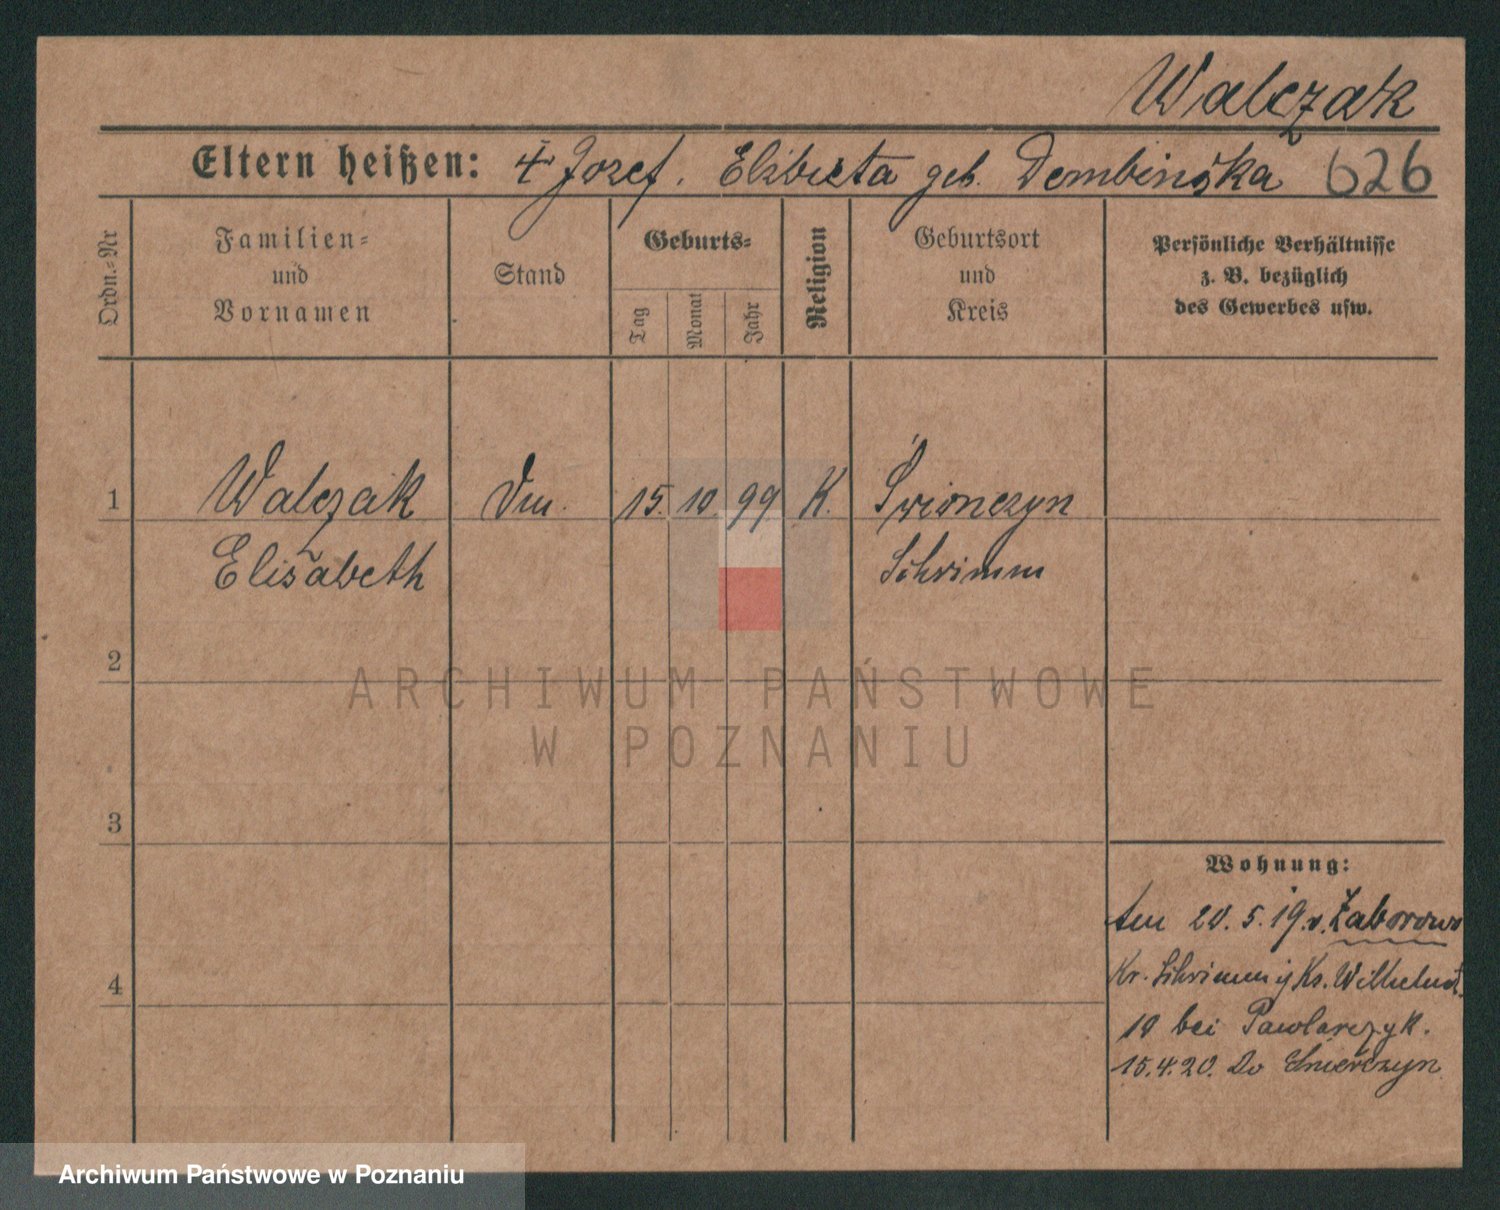 Walczak
Eltern heißen: Jozef. Elzbieta geb. Dembinska 626
Ordn.-Nr
Familien-
und
Vornamen
Stand
Geburts-
Tag
Monat
Jahr
Religion
Geburtsort
und
Kreis
Persönliche Verhältnisse
z. B. bezüglich
des Gewerbes usw.
1 Walczak 15. 10 99 K.
Elisabeth Schrimm
2
3
4
Wohnung:
20. 5. 19. v. Zaborowo
Kr. Schrimm
10 bei Pawlarczyk.
15. 4. 20. Do
ARCHIWUM PAŃSTWOWE
W POZNANIU
Archiwum Państwowe w Poznaniu